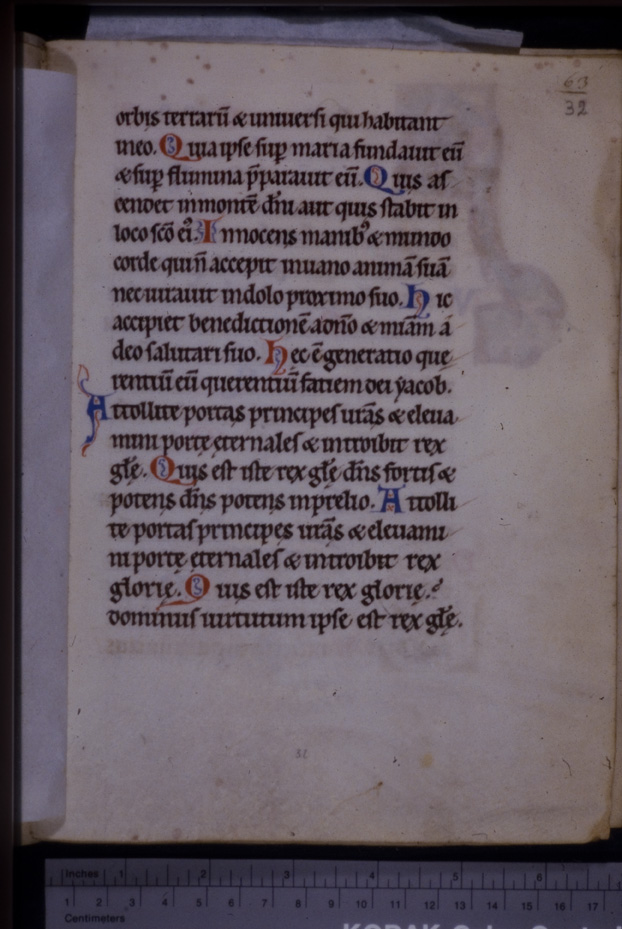 63
32
orbis terrarū & uniuersi qui habitant
in eo. Quia ipse sup̲ maria fundauit eū
& sup̲ flumina p̄parauit eū. Quis as
cendet in montē dn̄i aut quis stabit in
loco sc̄o ei᾿. Innocens manib᾿ & mundo
corde qui n̄ accepit in uano animā suā
nec iurauit in dolo proximo suo. Hic
accipiet benedictionē a dn̄o & mīam a
deo salutari suo. Hec ē generatio que
rentiū eū querentiū faciem dei yacob.
Attollite portas principes ur̄as & eleua
mini portę ęternales & introibit rex
gl̄ę. Quis est iste rex gl̄ę dn̄s fortis &
potens dn̄s potens in prelio. Attolli
te portas principes ur̄as & eleuami
ni portę ęternales & introibit rex
glorię. Quis est iste rex glorię.
dominus uirtutum ipse est rex gl̄ę.
32
Inches 1 2 3 4 5 6
1 2 3 4 5 6 7 8 9 10 11 12 13 14 15 16 17
Centimeters